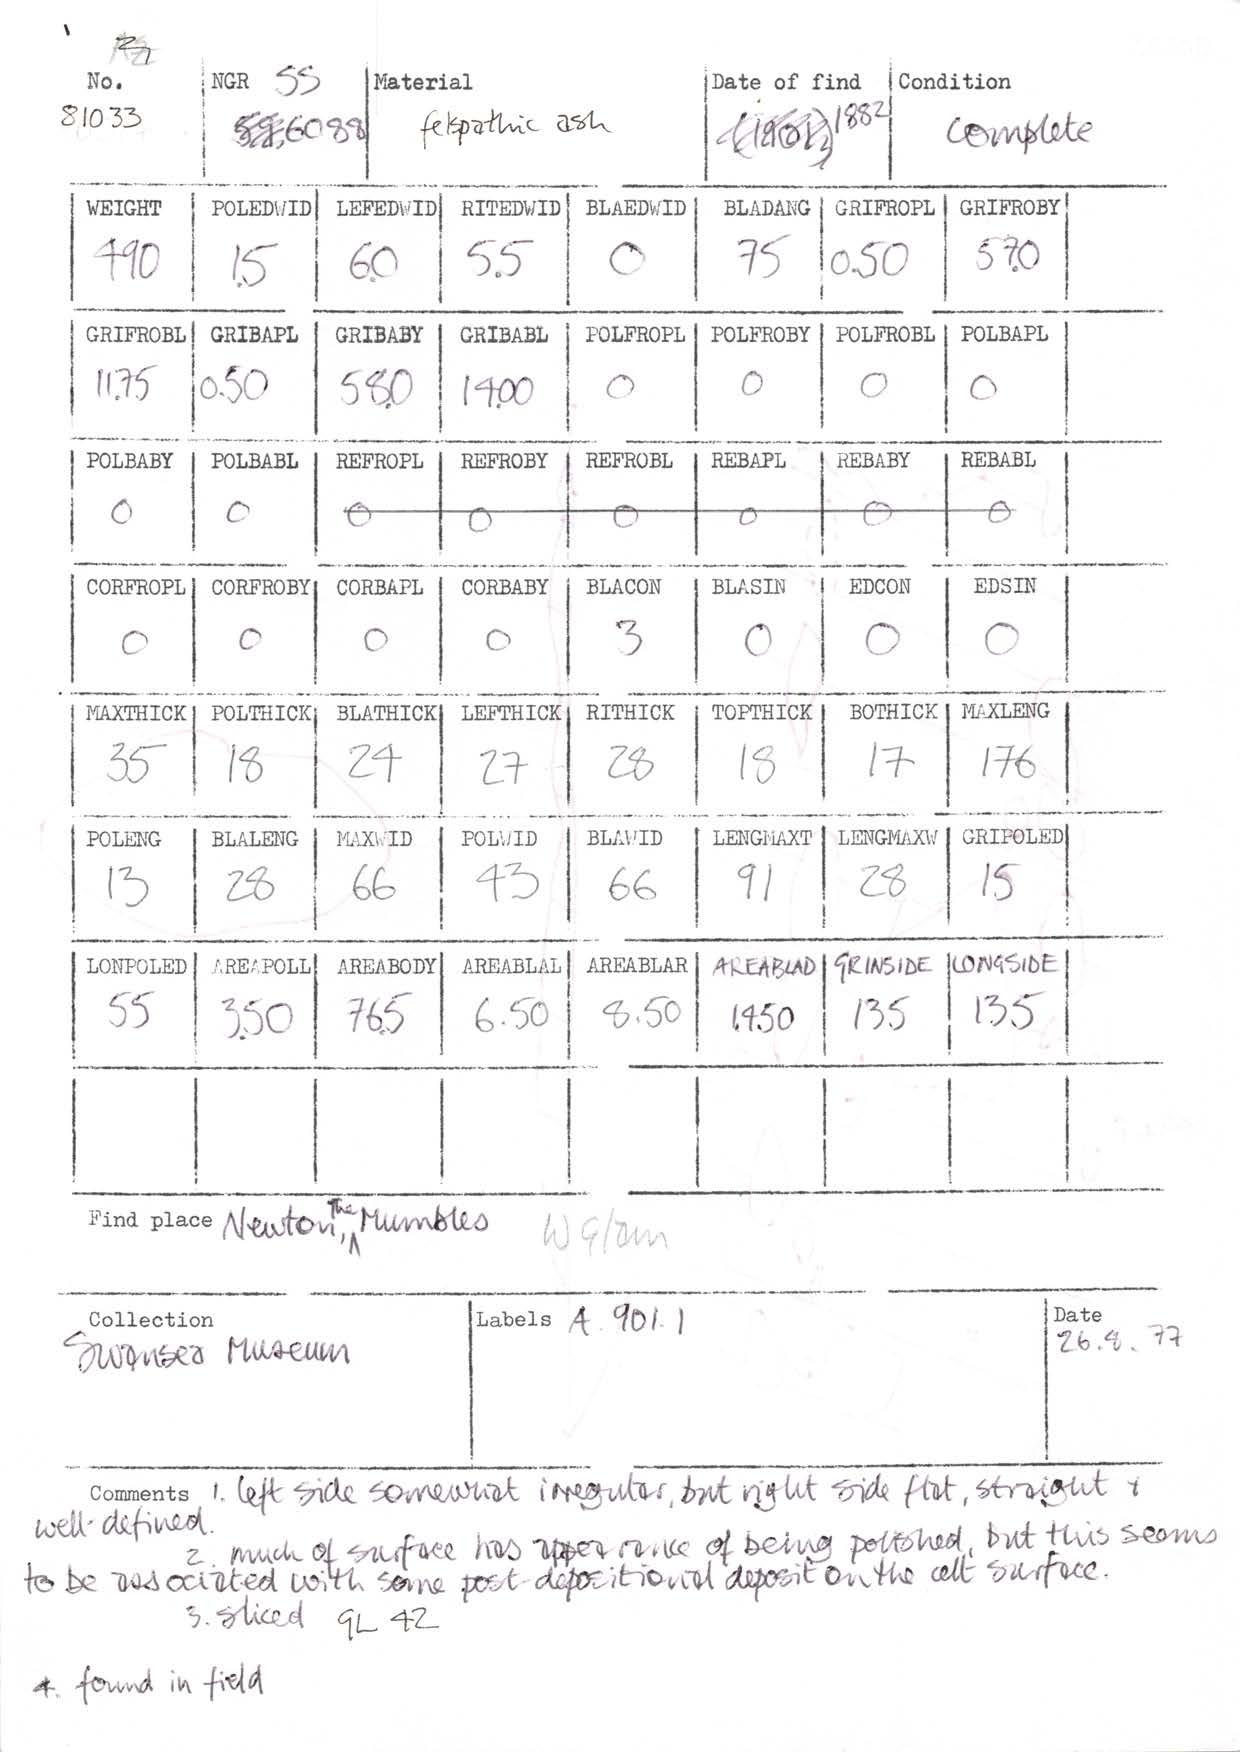 No. NGR SS Material Date of find Condition
81033 6088 felspathic ash 1882 complete
WEIGHT POLEDWID LEFEDWID RITEDWID BLAEDWID BLADANG GRIFROPL GRIFROBY
490 1.5 6.0 5.5 0 75 0.50 57.0
GRIFROBL GRIBAPL GRIBABY GRIBABL POLFROPL POLFROBY POLFROBL POLBAPL
11.75 0.50 58.0 14.00 0 0 0 0
POLBABY POLBABL REFROPL REFROBY REFROBL REBAPL REBABY REBABL
0 0 0 0 0 0 0 0
CORFROPL CORFROBY CORBAPL CORBABY BLACON BLASIN EDCON EDSIN
0 0 0 0 3 0 0 0
MAXTHICK POLTHICK BLATHICK LEFTHICK RITHICK TOPTHICK BOTHICK MAXLENG
35 18 24 27 28 18 17 176
POLENG BLALENG MAXWID POLWID BLAWID LENGMAXT LENGMAXW GRIPOLED
13 28 66 43 66 91 28 15
LONPOLED AREAPOLL AREABODY AREABLAL AREABLAR AREABLAD GRINSIDE LONGSIDE
55 3.50 76.5 6.50 8.50 14.50 135 135
Find place Newton, the Mumbles W Glam
Collection Labels A. 901.1 Date
Swansea Museum 26.8.77
Comments 1. left side somewhat irregular, but right side flat, straight &
well-defined.
2. much of surface has appearance of being polished, but this seems
to be associated with some post-depositional deposit on the celt surface.
3. sliced GL 42
4. found in field